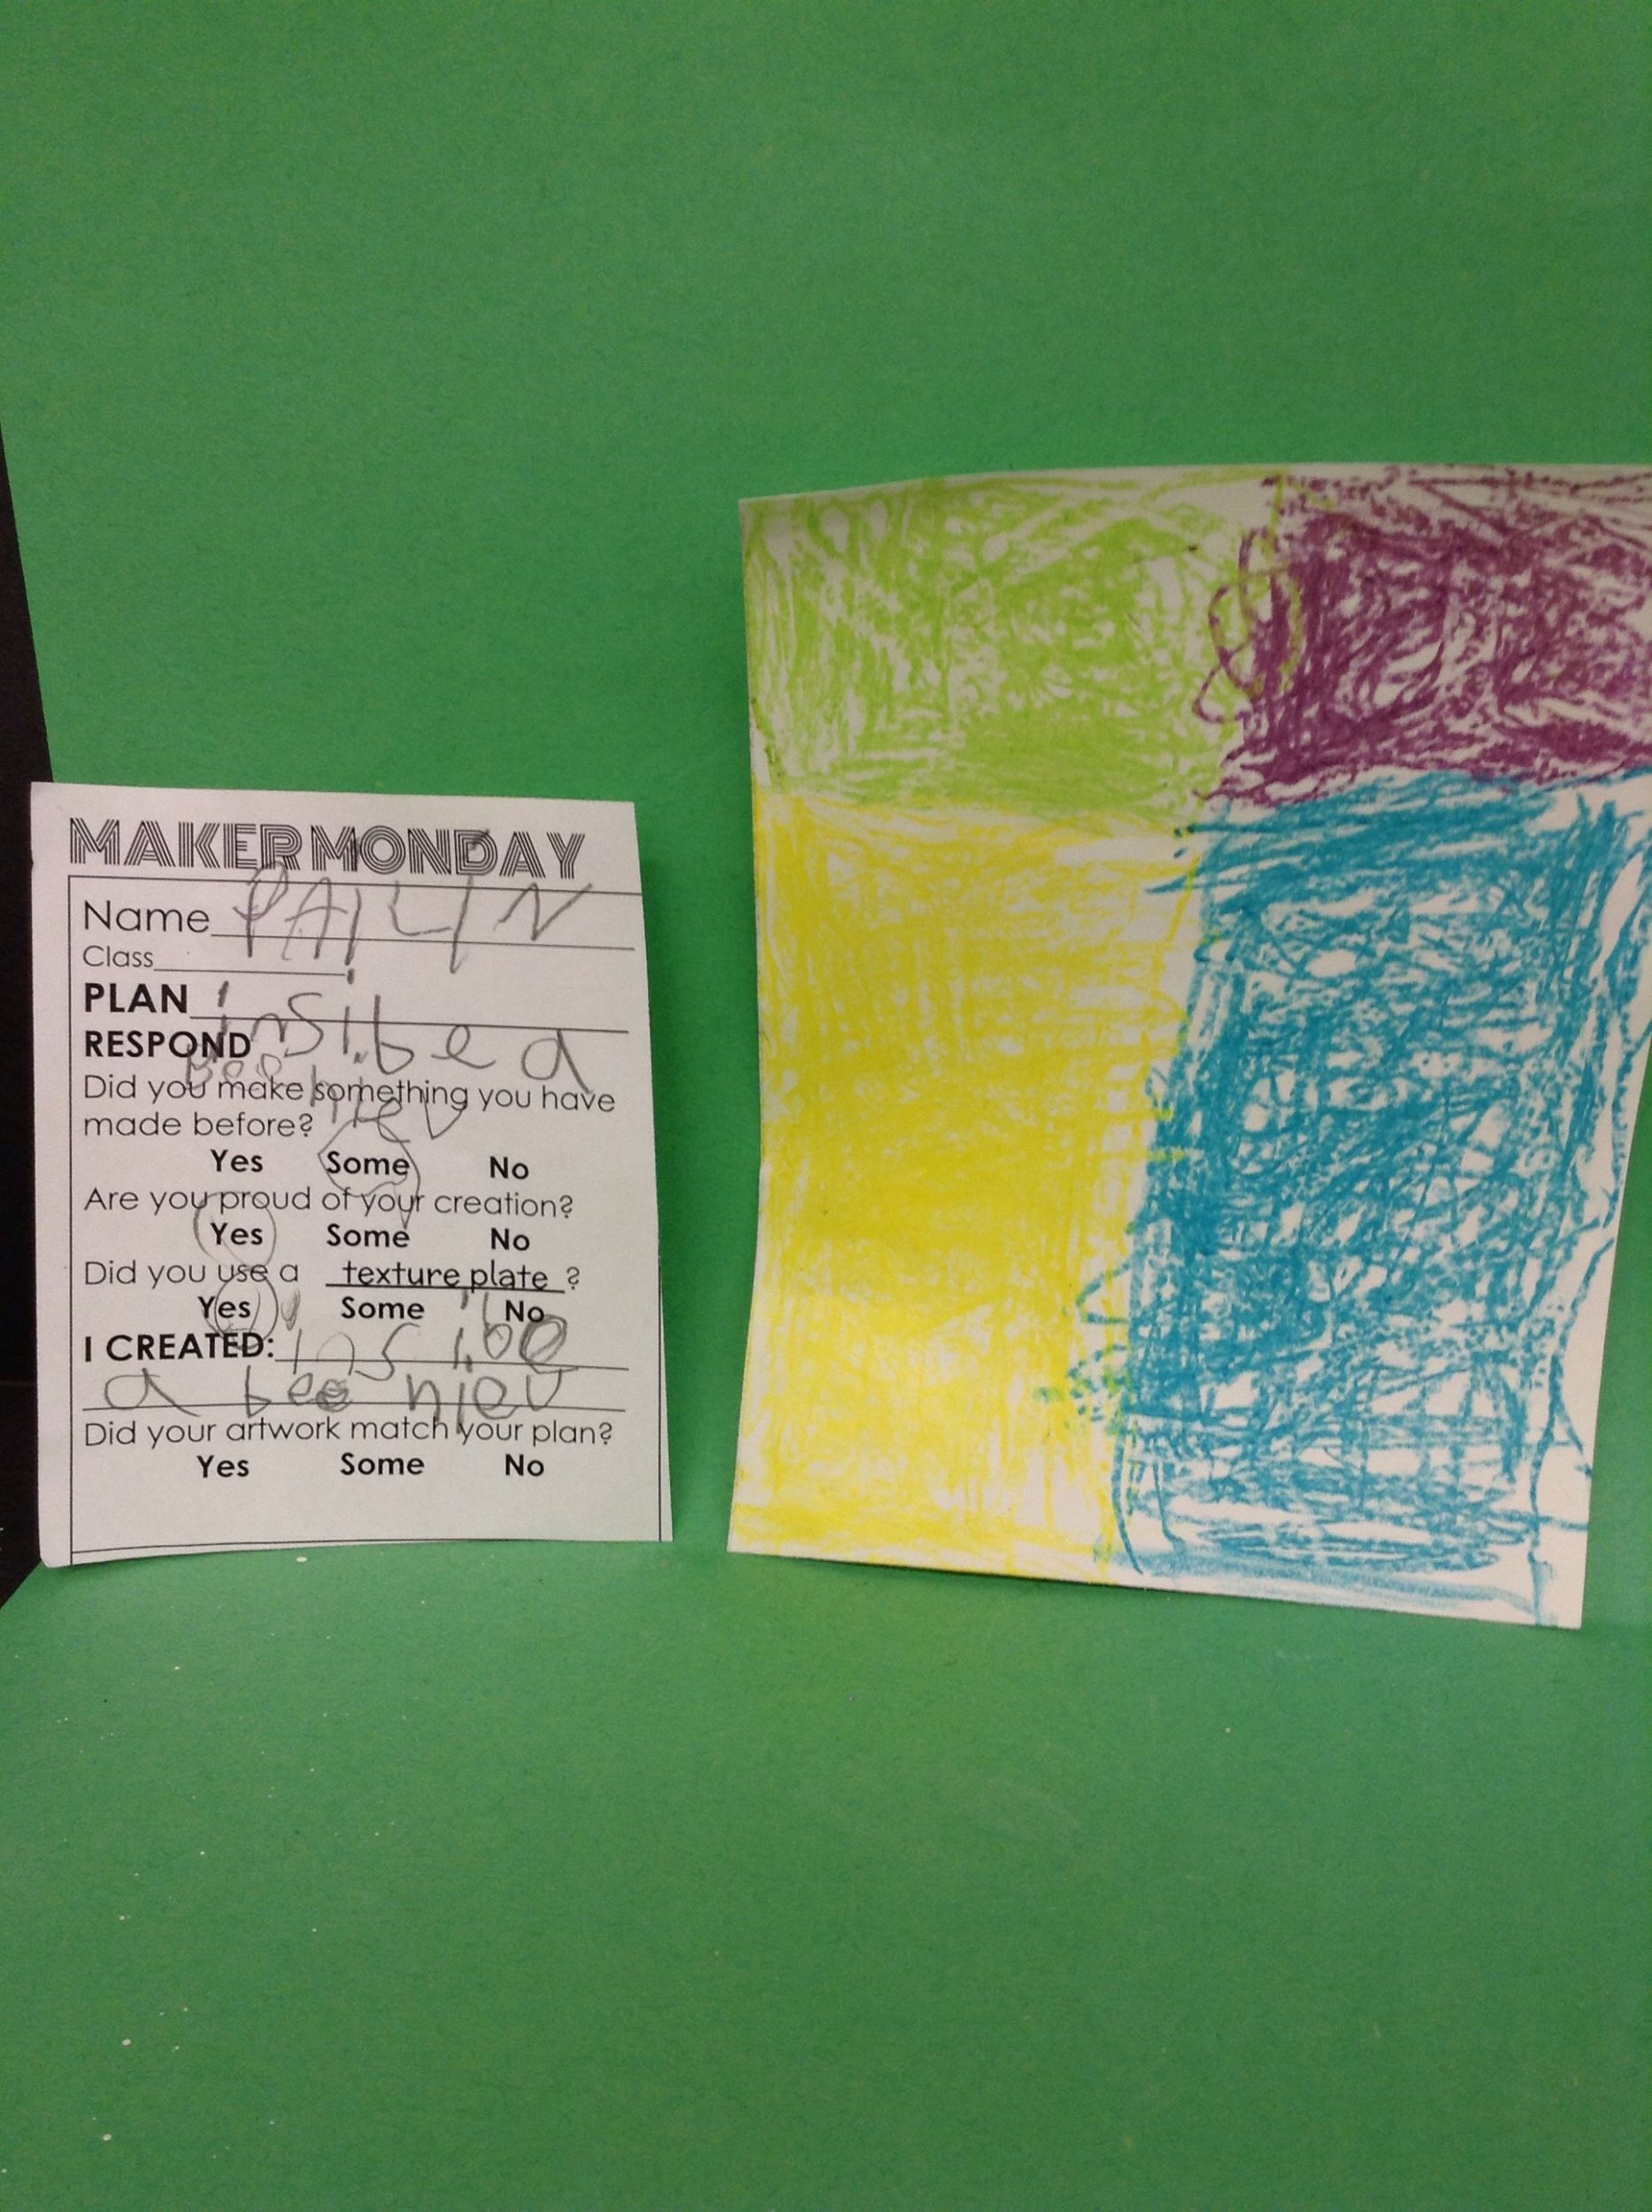 MAKER MONDAY
Name PAILIN
Class
PLAN insibe a
RESPOND
bee hiev
Did you make something you have
made before?
Yes Some No
Are you proud of your creation?
Yes Some No
Did you use a texture plate ?
Yes Some No
I CREATED: insibe
a bee hiev
Did your artwork match your plan?
Yes Some No